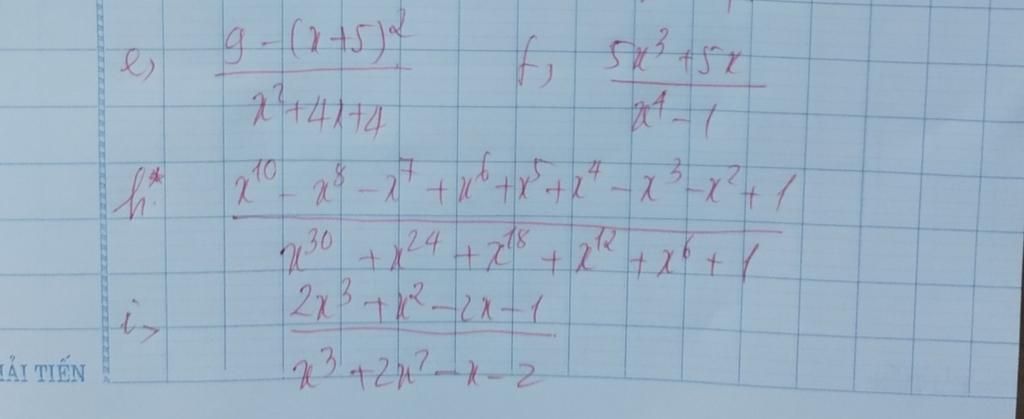 e, 9 - (x+5)² / x²+4x+4 f, 5x³+5x / x⁴-1
h.* x¹⁰ - x⁸ - x⁷ + x⁶ + x⁵ + x⁴ - x³ - x² + 1 / x³⁰ + x²⁴ + x¹⁸ + x¹² + x⁶ + 1
i, 2x³ + x² - 2x - 1 / x³ + 2x² - x - 2
ẢI TIẾN